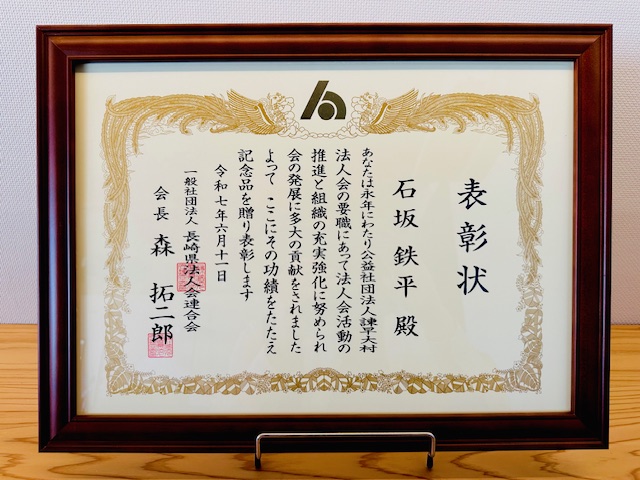 表彰状
石坂鉄平殿
あなたは永年にわたり公益社団法人諫早大村
法人会の要職にあって法人会活動の
推進と組織の充実強化に努められ
会の発展に多大の貢献をされました
よって ここにその功績をたたえ
記念品を贈り表彰します
令和七年六月十一日
一般社団法人 長崎県法人会連合会
会長 森 拓二郎